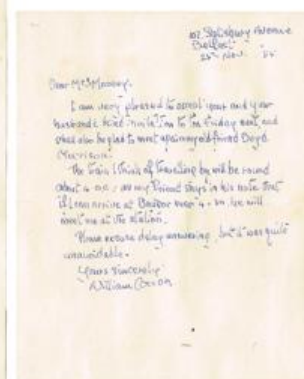 102 Salisbury Avenue
Belfast
25th Nov. '55
Dear Mrs Mooney.
I am very pleased to accept your and your
husband's kind invitation to tea Friday next, and
shall also be glad to meet again my old friend Boyd
Morrison.
The train I think of travelling by will be round
about 4 as my friend says in his note that
if I can arrive at Bangor 4. he will
meet me at the station.
Please excuse delay answering, but it was quite
unavoidable.
Yours sincerely
William Conor